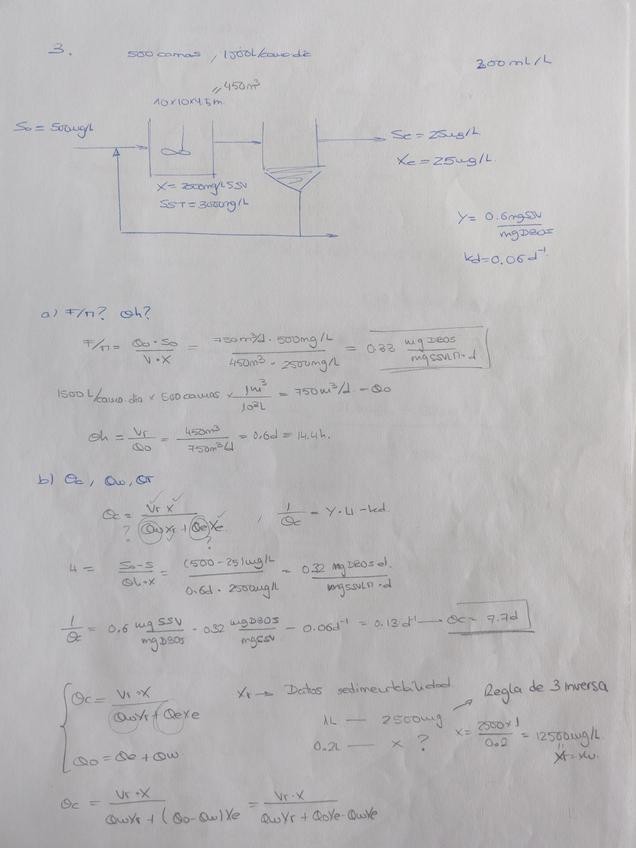 3. 500 camas, 1500L/cama·día
200 mL/L
10x10x4.5m = 450m³
S₀ = 500mg/L
Se = 25mg/L
Xe = 25mg/L
X = 2500mg/L SSV
SST = 3000mg/L
Y = 0.6 mgSSV / mgDBO5
kd = 0.06 d⁻¹
a) F/M? Θh?
F/M = Q₀ · S₀ / V · X = 750m³/d · 500mg/L / 450m³ · 2500mg/L = 0.33 mg DBO5 / mgSSVLM · d
1500 L/cama·día x 500 camas x 1m³ / 10³L = 750m³/d - Q₀
Θh = Vr / Q₀ = 450m³ / 750m³/d = 0,6d = 14.4h.
b) Θc, Qw, Qr
Θc = Vr X / QwXr + QeXe , 1 / Θc = Y · U - kd.
? ?
U = S₀ - S / Θh · X = (500-25)mg/L / 0.6d · 2500mg/L = 0.32 mgDBO5 / mgSSVLM · d
1 / Θc = 0.6 mg SSV / mgDBO5 · 0.32 mgDBO5 / mgSSV - 0.06d⁻¹ = 0.13 d⁻¹ → Θc = 7.7d
Θc = Vr · X / QwXr + QeXe
Q₀ = Qe + Qw
Xr → Datos sedimentabilidad
1L — 2500mg
0.2L — X ?
Regla de 3 inversa
X = 2500x1 / 0.2 = 12500mg/L
Xr = Xw
Θc = Vr · X / QwXr + (Q₀ - Qw)Xe = Vr · X / QwXr + Q₀Xe - QwXe